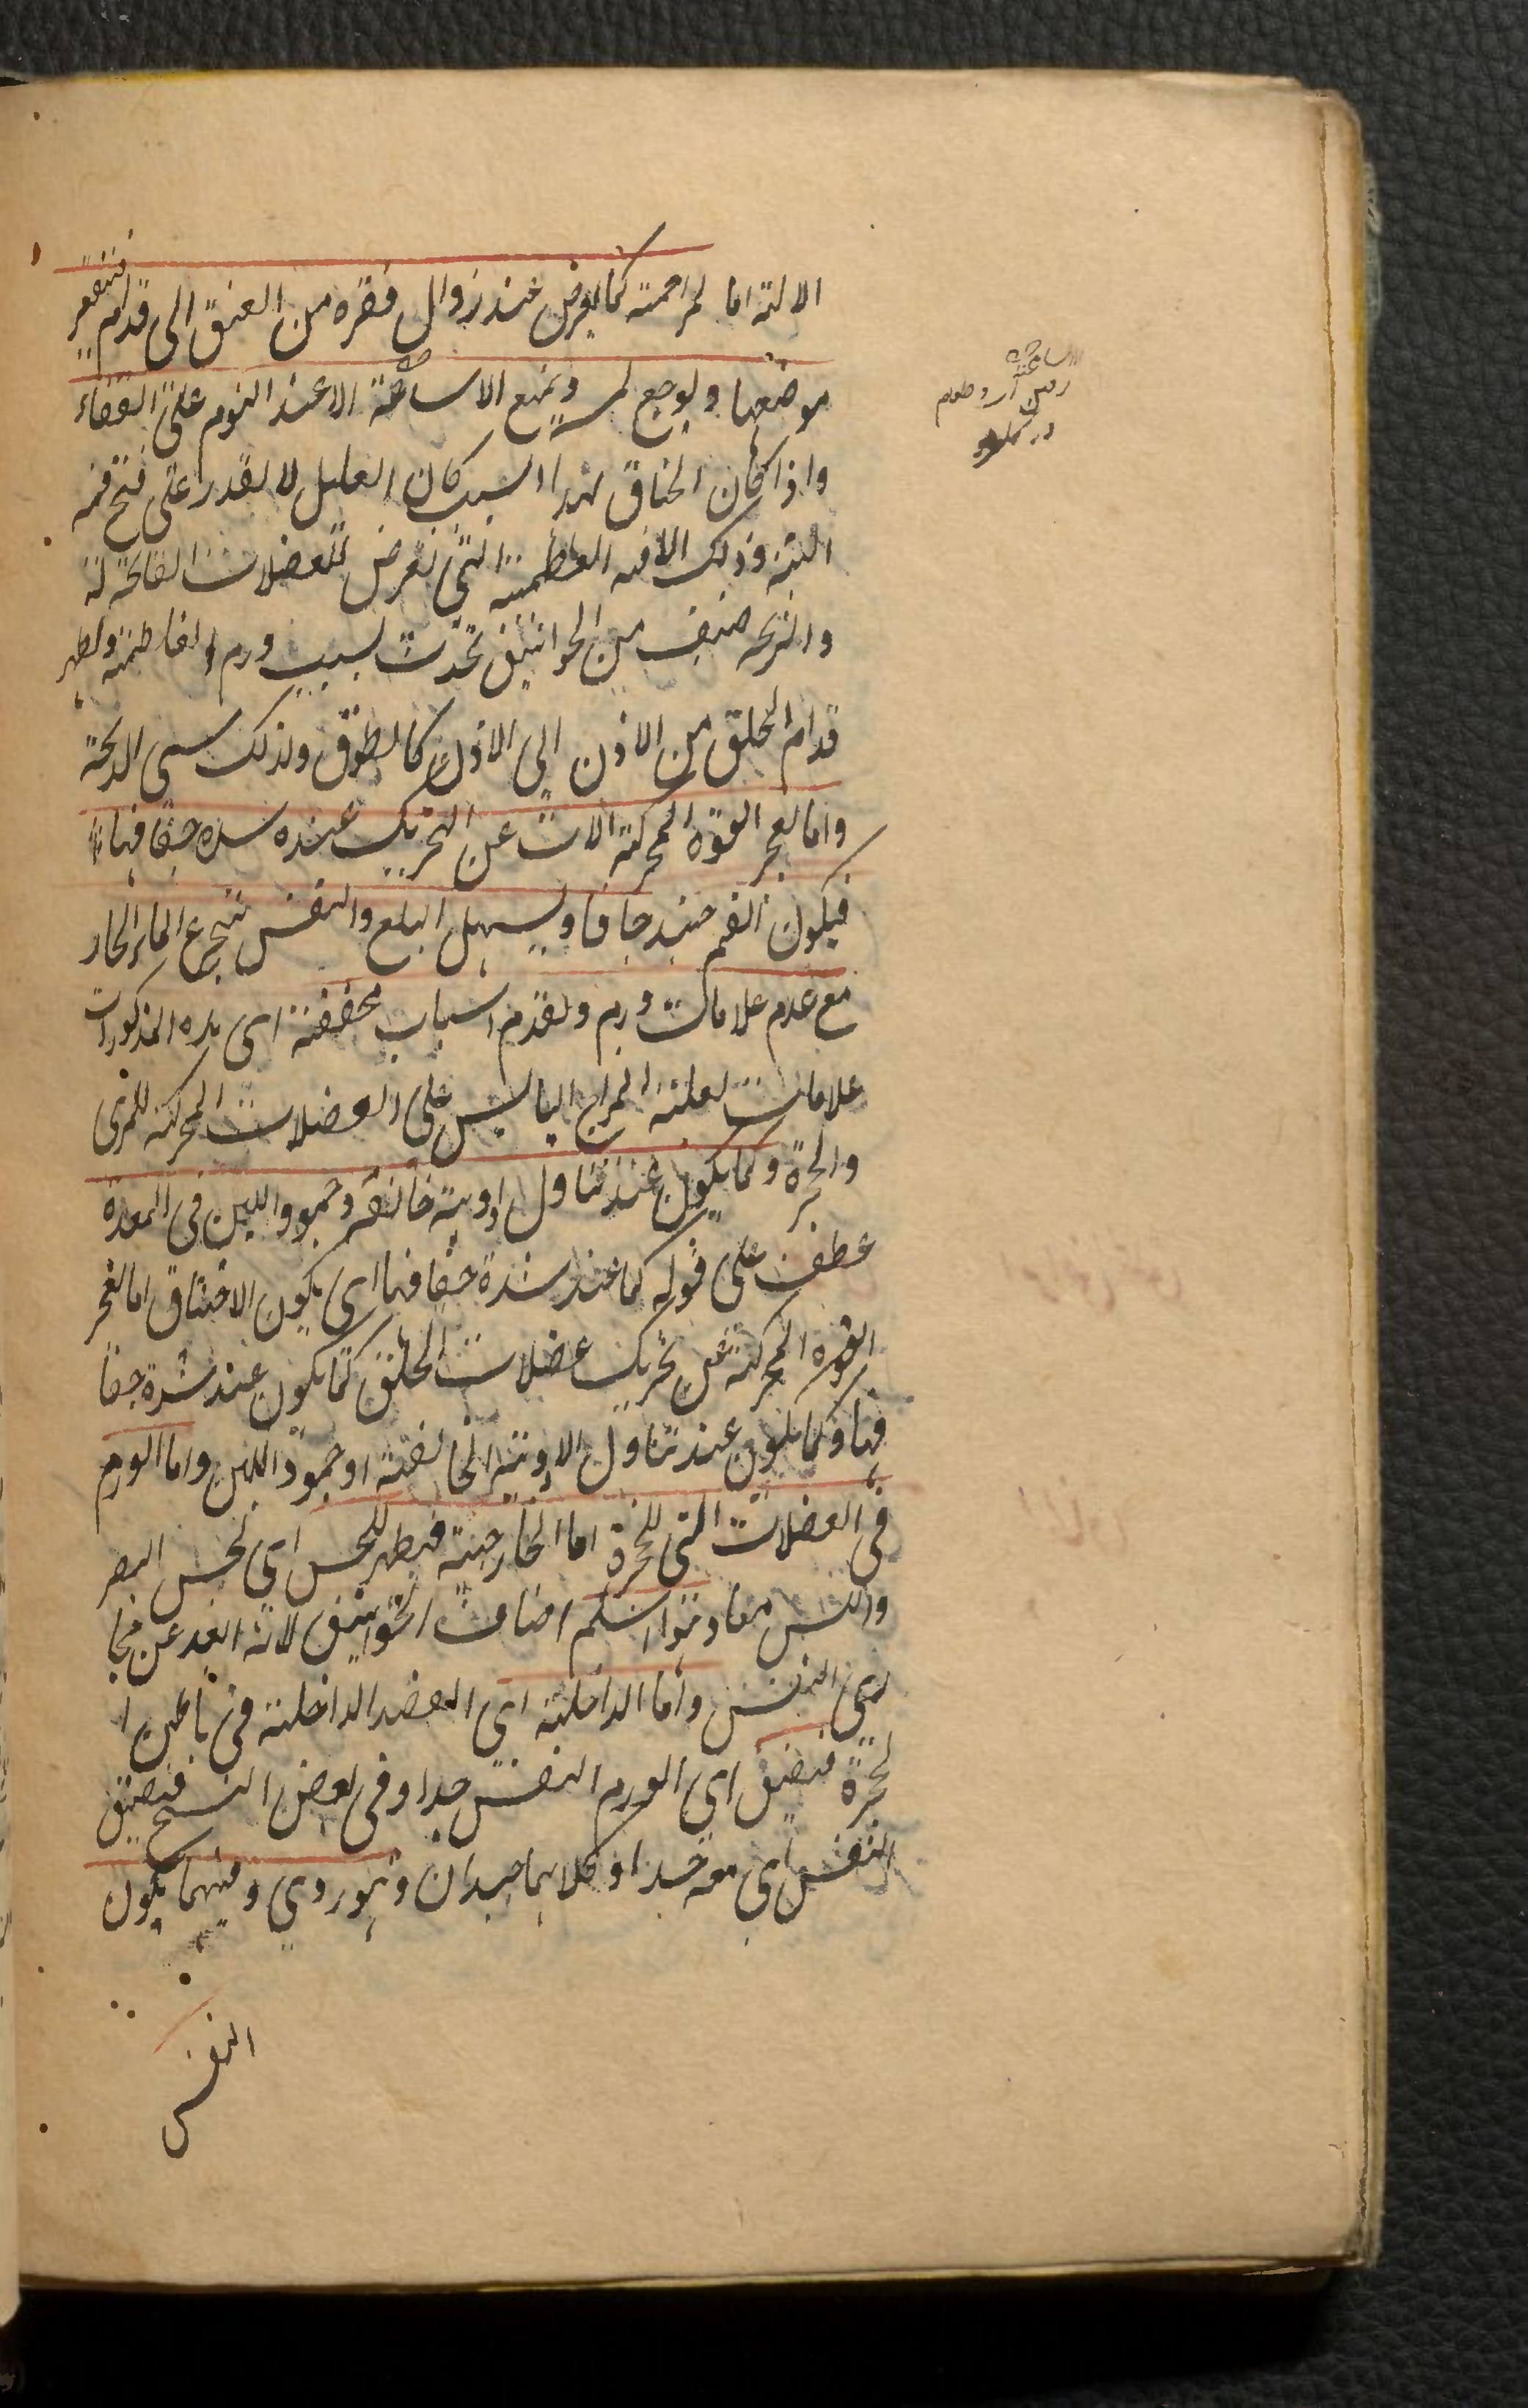 الالة اما لمزاحمة كما يعرض عند زوال فقرة من العنق الى قدام فتقعر
موضعها و لوجع لمسه و يمنع الاساغة الا عند النوم على القفاء
واذا كان الخناق لهذا السبب كان العليل لا يقدر على فتح فمه
البتة وذلك الافه العظيمة التي تعرض للعضلات الفاتحة له
والذبحه صنف من الخوانيق تحدث بسبب ورم و يظهر
قدام الحلق من الاذن الى الاذن كالطوق ولذلك سمى الذبحة
واما لعجز القوة المحركة الالات عن التحريك عند شدة جفافها
فيكون الفم حينئذ جافا ويسهل البلع والنفس بتجرع الماء الحار
مع عدم علامات ورم وتقدم اسباب مجففة اى هذه المذكورات
علامات لغلبة المزاج اليابس على العضلات المحركة للمرى
والحنجرة وكما يكون عند تناول ادوية خانقة و جمود اللبن فى المعدة
عطف على قوله كما عند شدة جفافها اى يكون الاختناق اما لعجز
القوة المحركة عن تحريك عضلات الحلق كما يكون عند شدة جفا
فها وكما يكون عند تناول الادوية الخانقة او جمود اللبن واما الورم
فى العضلات التى للحنجرة اما الخارجية فيظهر للحس اى لحس البصر
واللمس معا وهو اسلم اصناف الخوانيق لانه ابعد عن مجا
رى النفس واما الداخلية اى العضد الداخلية فى باطن ا
لحنجرة فيضيق اى الورم النفس جدا وفى بعض النسخ فيضيق
النفس اى معه جدا وكلاهما جيدان وهو ردي و فيهما يكون
النفس